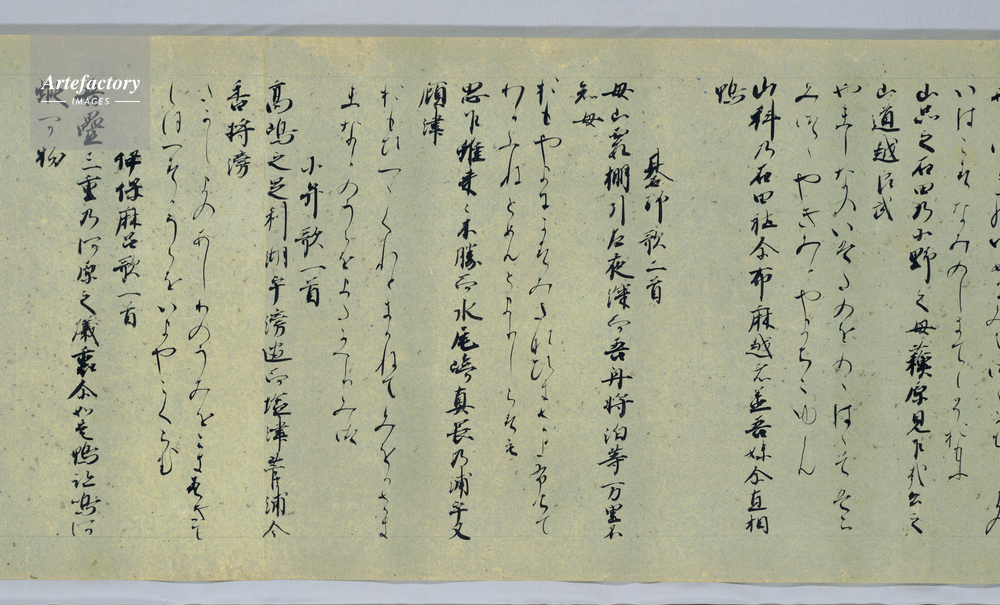 山品之石田乃小野之母蘓原見乍哉公之
山道越良武
やましなのいはたのをのゝはゝそはら
みつゝやきみかやまちこゆらん
山科乃石田社尓布麻越者蓋吾妹尓直相
鴨
碁師歌二首
母山霞棚引左夜深而吾舟将泊等万里不
知母
おもやまにかすみたなひきさよふけて
わかふねとめんとまりしらすも
思乍雖来々不勝而水尾崎真長乃浦乎又
顧津
おもひつゝくれときかねてみをのさき
まなかのうらをまたかへりみつ
小弁歌一首
高嶋之足利湖乎滂過而塩津菅浦今
香将滂
たかしまのあしりのうみをこきすきて
しほつすかうらをいまやこくらむ
伊保麻呂歌一首
吾疊三重乃河原之礒裏尓如是鴨跡鳴河
蝦可物
Artefactory
IMAGES